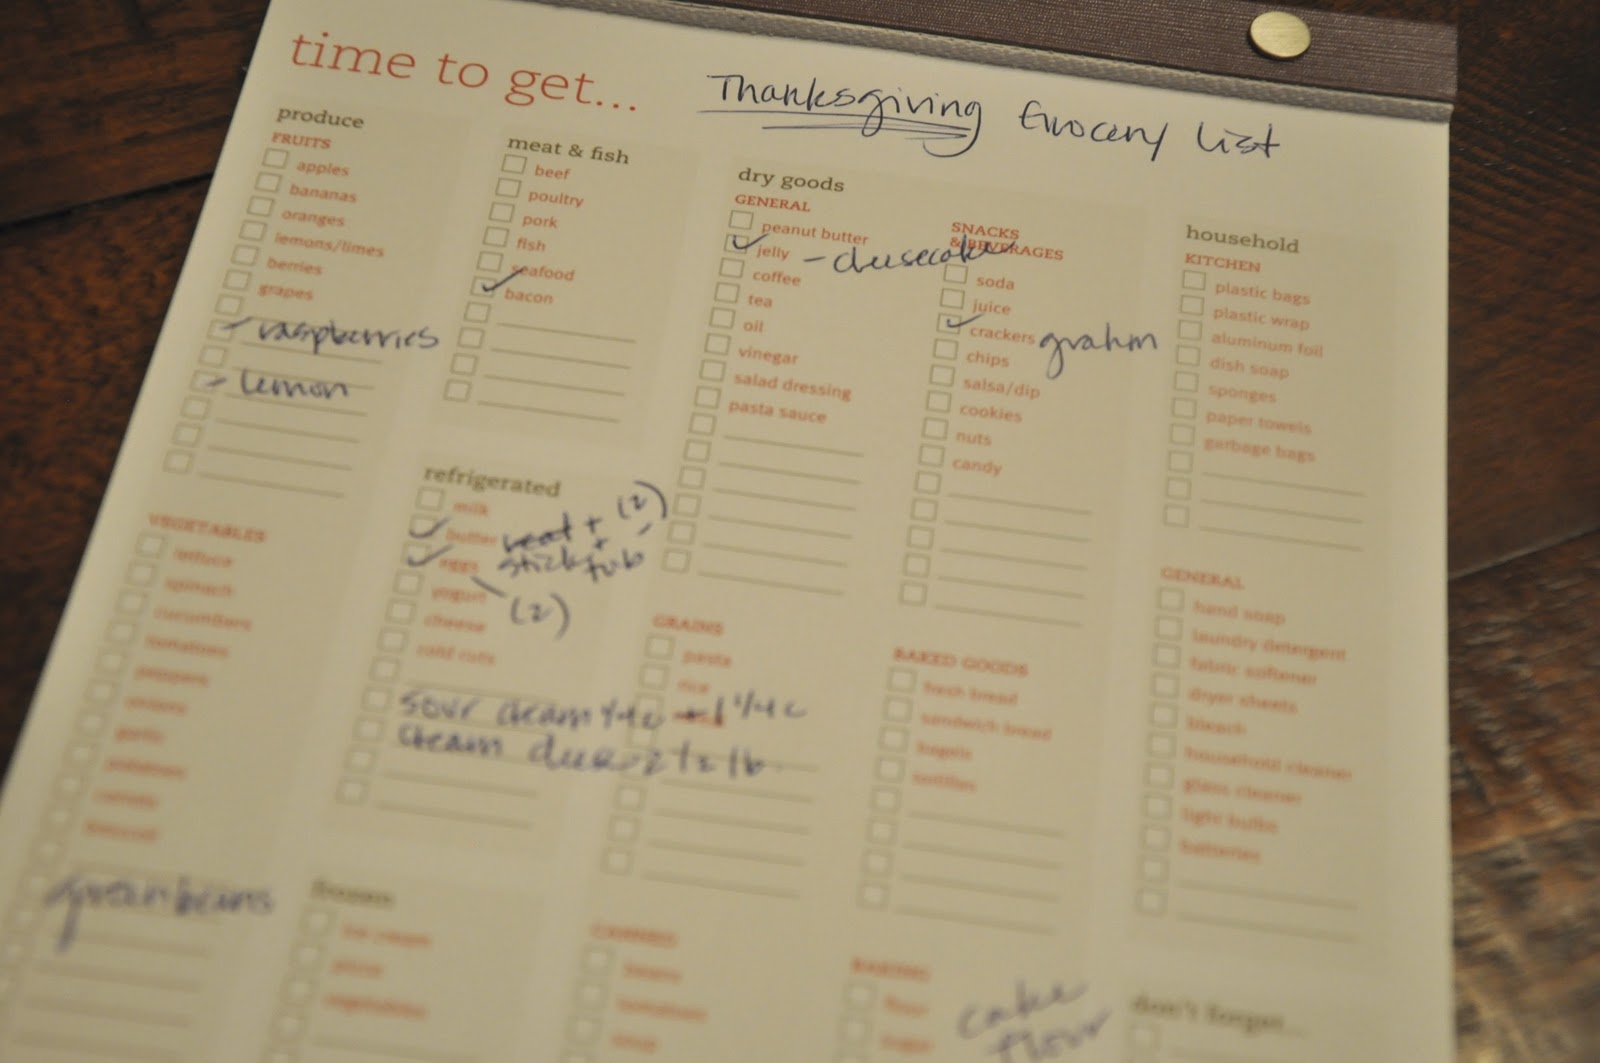 time to get...
Thanksgiving Grocery List
produce
FRUITS
apples
bananas
oranges
lemons/limes
berries
grapes
raspberries
lemon
VEGETABLES
lettuce
spinach
cucumbers
tomatoes
peppers
onions
garlic
potatoes
carrots
broccoli
green beans
meat & fish
beef
poultry
pork
fish
seafood
bacon
refrigerated
milk
butter
stick + tub (2)
eggs
(2)
yogurt
cheese
cold cuts
sour cream 1/4 c + 1 1/4 c
cream cheese 2 1/2 lb
frozen
ice cream
pizza
vegetables
dry goods
GENERAL
peanut butter
jelly - cheesecake
coffee
tea
oil
vinegar
salad dressing
pasta sauce
GRAINS
pasta
rice
CANNED
beans
tomatoes
soup
SNACKS
& BEVERAGES
soda
juice
crackers grahm
chips
salsa/dip
cookies
nuts
candy
BAKED GOODS
fresh bread
sandwich bread
bagels
tortillas
BAKING
flour
sugar
cake
flour
household
KITCHEN
plastic bags
plastic wrap
aluminum foil
dish soap
sponges
paper towels
garbage bags
GENERAL
hand soap
laundry detergent
fabric softener
dryer sheets
bleach
household cleaner
glass cleaner
light bulbs
batteries
don't forget...